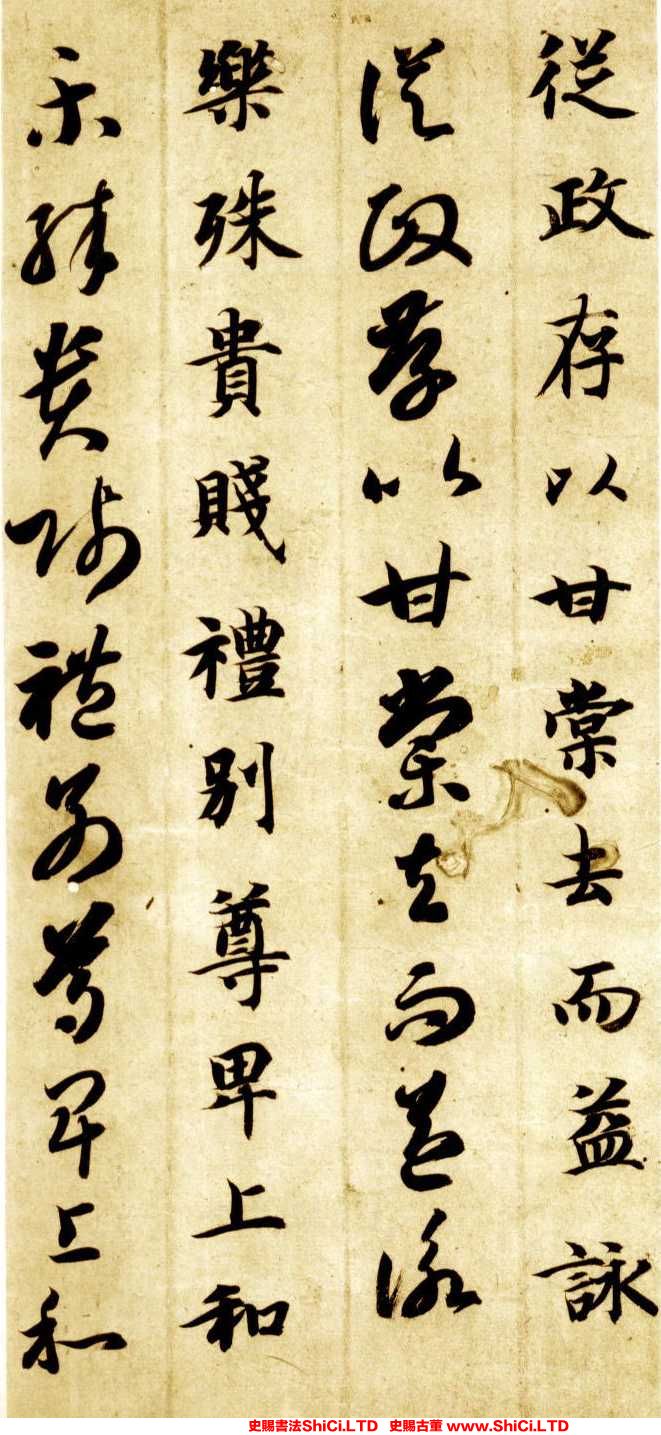 從政存以甘棠去而益詠
從政存以甘棠去而益詠
樂殊貴賤禮別尊卑上和
樂殊貴賤禮別尊卑上和
史賜書法ShiCi.LTD 史賜古董 www.ShiCi.LTD